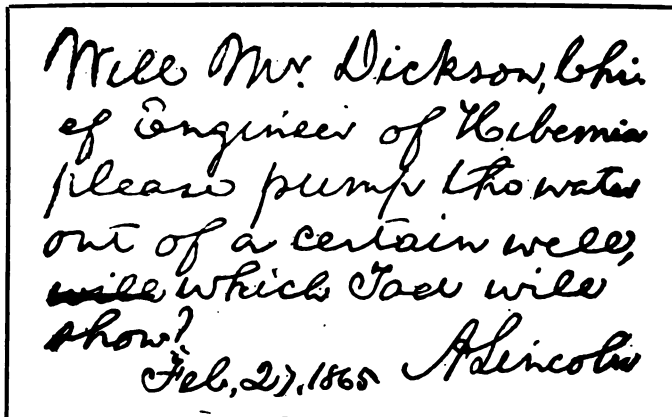 Will Mr. Dickson, Chi-
ef Engineer of Hibernia
please pump the water
out of a certain well,
will which Tad will
show?
A Lincoln
Feb. 27, 1865